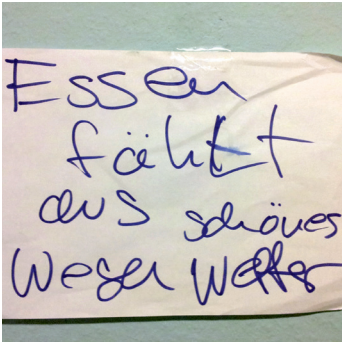 Essen
fählt
aus schönes
Wegen Wetter